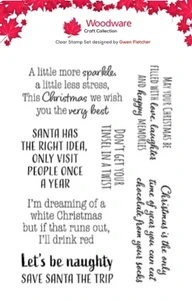 Woodware
Craft Collection
Clear Stamp Set designed by Gwen Fletcher
A little more sparkle,
a little less stress,
This Christmas we wish
you the very best
MAY YOUR CHRISTMAS BE
FILLED WITH love, laughter
AND happy MEMORIES
SANTA HAS
THE RIGHT IDEA,
ONLY VISIT
PEOPLE ONCE
A YEAR
DON'T GET YOUR
TINSEL IN A TWIST
I'm dreaming of a
white Christmas
but if that runs out,
I'll drink red
Christmas is the only
time of year you can eat
chocolate from your socks
Let's be naughty
SAVE SANTA THE TRIP